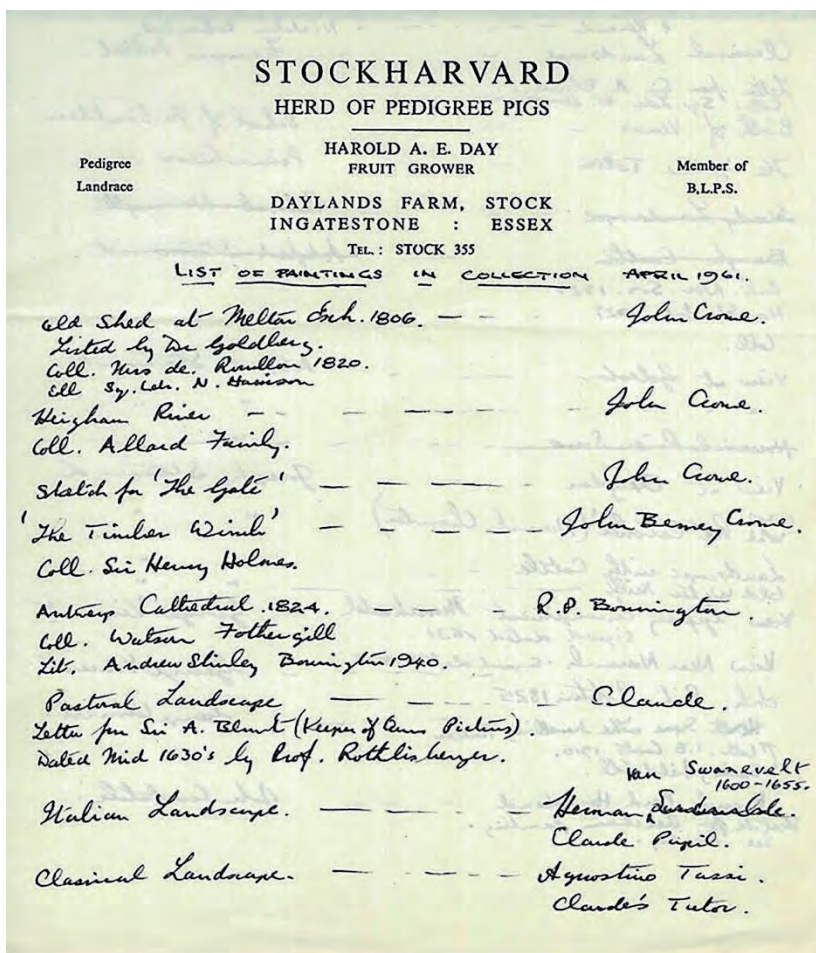 STOCKHARVARD
HERD OF PEDIGREE PIGS
HAROLD A. E. DAY
FRUIT GROWER
Pedigree
Landrace
Member of
B.L.P.S.
DAYLANDS FARM, STOCK
INGATESTONE : ESSEX
TEL.: STOCK 355
LIST OF PAINTINGS IN COLLECTION APRIL 1961.
Old Shed at Melton Exh. 1806. — — John Crome.
Listed by Dr Goldberg.
Coll. Mrs de. 1820.
Coll Sq. Ldr. N. Harrison
Heigham River — — — — — John Crome.
Coll. Allard Family.
Sketch for 'The Gate' — — — — — John Crome.
'The Timber Winch' — — — — — John Berney Crome.
Coll. Sir Henry Holmes.
Antwerp Cathedral. 1824. — — — R.P. Bonnington.
Coll. Watson Fothergill
Lit. Andrew Shirley Bonnington 1940.
Pastoral Landscape — — — — — Claude.
Letter from Sir A. Blunt (Keeper of Queens Pictures).
Dated Mid 1630's by Prof. Rothlisberger.
Van Swanevelt
1600-1655.
Italian Landscape. — — — — — Herman
Claude Pupil.
Classical Landscape. — — — — Agnostino Tassi.
Claude's Tutor.